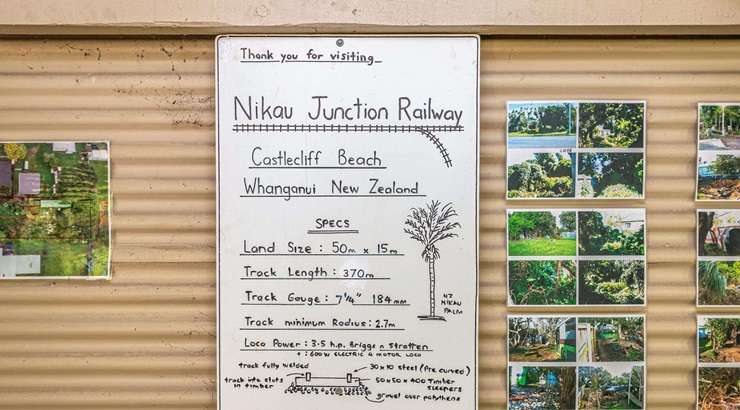 Thank you for visiting
Nikau Junction Railway
Castlecliff Beach
Whanganui New Zealand
SPECS
Land Size : 50m x 15m
Track Length : 370m
Track Gauge : 7¼" 184mm
Track minimum Radius : 2.7m
Loco Power : 3.5 h.p. Briggs n Stratten
+ : 600W ELECTRIC 4 MOTOR LOCO
NZ
NIKAU
PALM
track fully welded
30x10 steel (Pre curved)
track into slots
in timber
50x50x400 Timber
sleepers
gravel over polythene